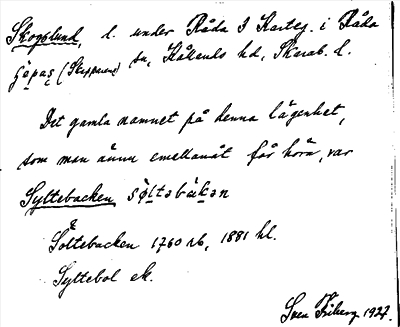 Skogslund, l. under Råda 3 Karteg. i Råda
Jöpas (Skepparens) sn, Kållands hd, Skarab. l.
Det gamla namnet på denna lägenhet,
som man ännu emellanåt får höra, var
Syltebacken søltəbakən
Söltebacken 1760 rb, 1881 hl.
Syltebol ek.
Sven Friberg 1927.